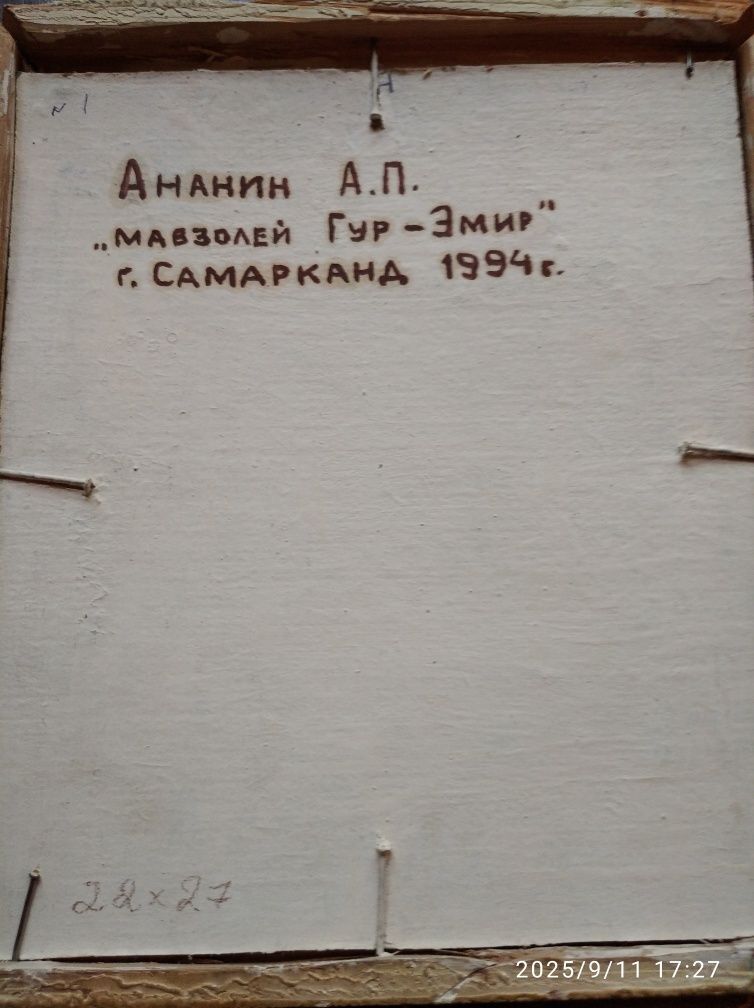 N 1
Ананин А.П.
„мавзолей Гур-Эмир"
г. Самарканд 1994г.
22x27
2025/9/11 17:27